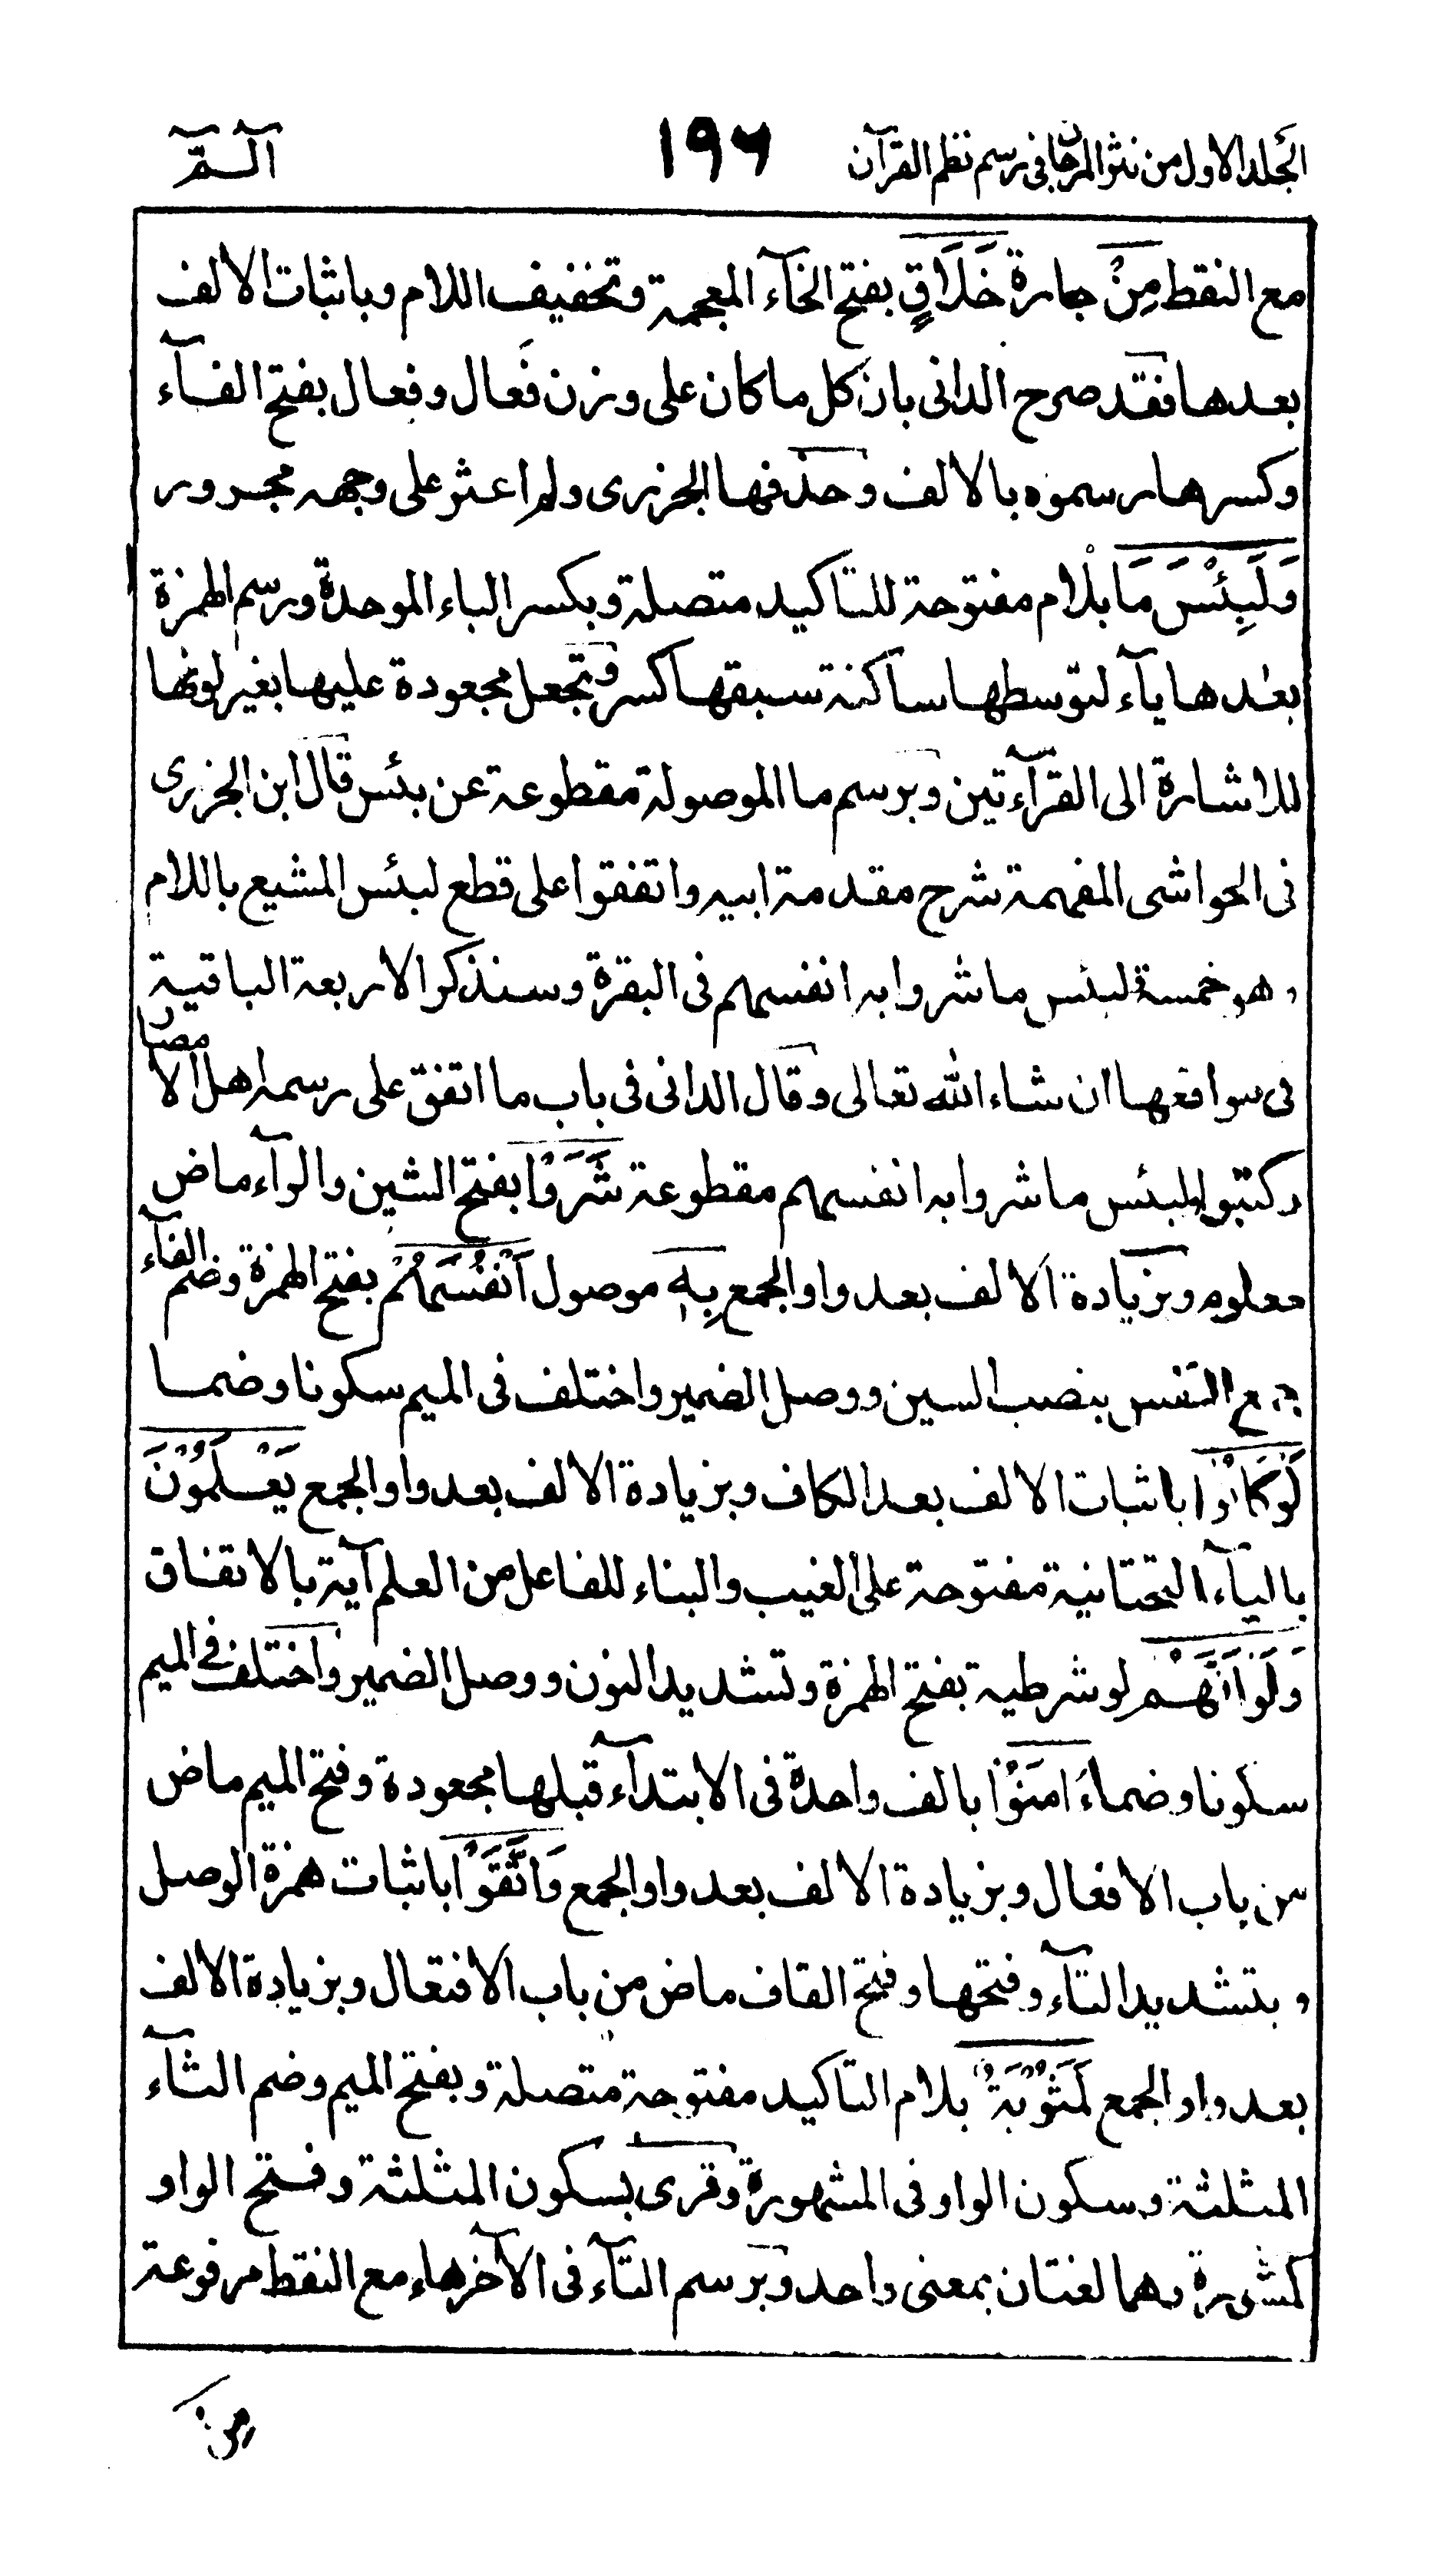 المجلد الاول من نثر المرجان فى رسم نظم القرآن ١٩٦ آلـمّ
مع النقط مِنْ جارة خَلَاقٍ بفتح الخآء المعجمة وتخفيف اللام وباثبات الالف
بعدها فقد صرح الدانى بان كل ما كان على وزن فَعال وفعال بفتح الفآء
وكسرها رسموه بالالف وحذفها الجزرى ولم اعثر على وجهه مجرور
وَلَبِئْسَ مَا بلام مفتوحة للتاكيد متصلة وبكسر الباء الموحدة ورسم الهمزة
بعدها يآء لتوسطها ساكنة سبقها كسر وتجعل مجعودة عليها بغير لونها
للاشارة الى القرآءتين وبرسم ما الموصولة مقطوعة عن بئس قال ابن الجزرى
فى الحواشى المفهمة شرح مقدمة ابيه واتفقوا على قطع لبئس المشيع باللام
وهو خمسة لبئس ما شروا به انفسهم فى البقرة وسنذكر الاربعة الباقية
فى مواقعها ان شاء الله تعالى وقال الدانى فى باب ما اتفق على رسمه اهل الامصار
وكتبوا لبئس ما شروا به انفسهم مقطوعة شَرَوْا بفتح الشين والرآء ماض
معلوم وبزيادة الالف بعد واو الجمع بِهٖ موصول اَنْفُسَهُمْ بفتح الهمزة وضم الفآء
جمع النفس بنصب السين ووصل الضمير واختلف فى الميم سكونا وضما
لَوْ كَانُوْا باثبات الالف بعد الكاف وبزيادة الالف بعد واو الجمع يَعْلَمُوْنَ
باليآء التحتانية مفتوحة على الغيب والبناء للفاعل من العلم آية بالاتفاق
وَلَوْ اَنَّهُمْ لو شرطية بفتح الهمزة وتشديد النون ووصل الضمير واختلف فى الميم
سكونا وضما ءَامَنُوْا بالف واحدة فى الابتدآء قبلها مجعودة وفتح الميم ماض
من باب الافعال وبزيادة الالف بعد واو الجمع وَاتَّقَوْا باثبات همزة الوصل
وبتشديد التآء وفتحها وفتح القاف ماض من باب الافتعال وبزيادة الالف
بعد واو الجمع لَمَثُوْبَةٌ بلام التاكيد مفتوحة متصلة وبفتح الميم وضم الثآء
المثلثة وسكون الواو فى المشهورة وقرئ بسكون المثلثة وفتح الواو
كمشورة وهما لغتان بمعنى واحد وبرسم التآء فى الآخر هاء مع النقط مرفوعة
من